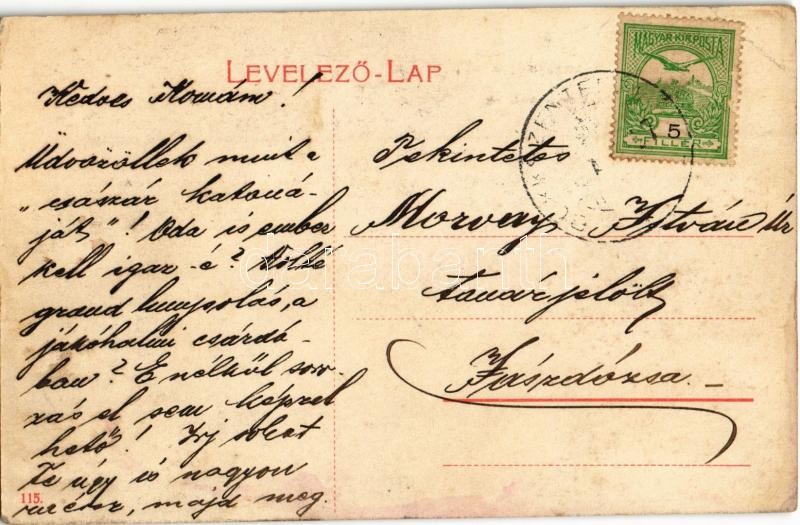 LEVELEZŐ-LAP
MAGYAR KIR. POSTA
5
FILLÉR
Kedves Komám!
Üdvözöllek mint a
"császár katoná-
ját"! Oda is ember
kell igaz-é? Volt-e
grand lumpolás, a
jákóhalmi csárdá-
ban? E nélkül soro-
zás el sem képzel-
hető! Írj sokat
Te úgy is nagyon
ráérsz, majd meg
115.
Tekintetes
Morvay István úr
tanárjelölt
Jászdózsa.-
darabanth